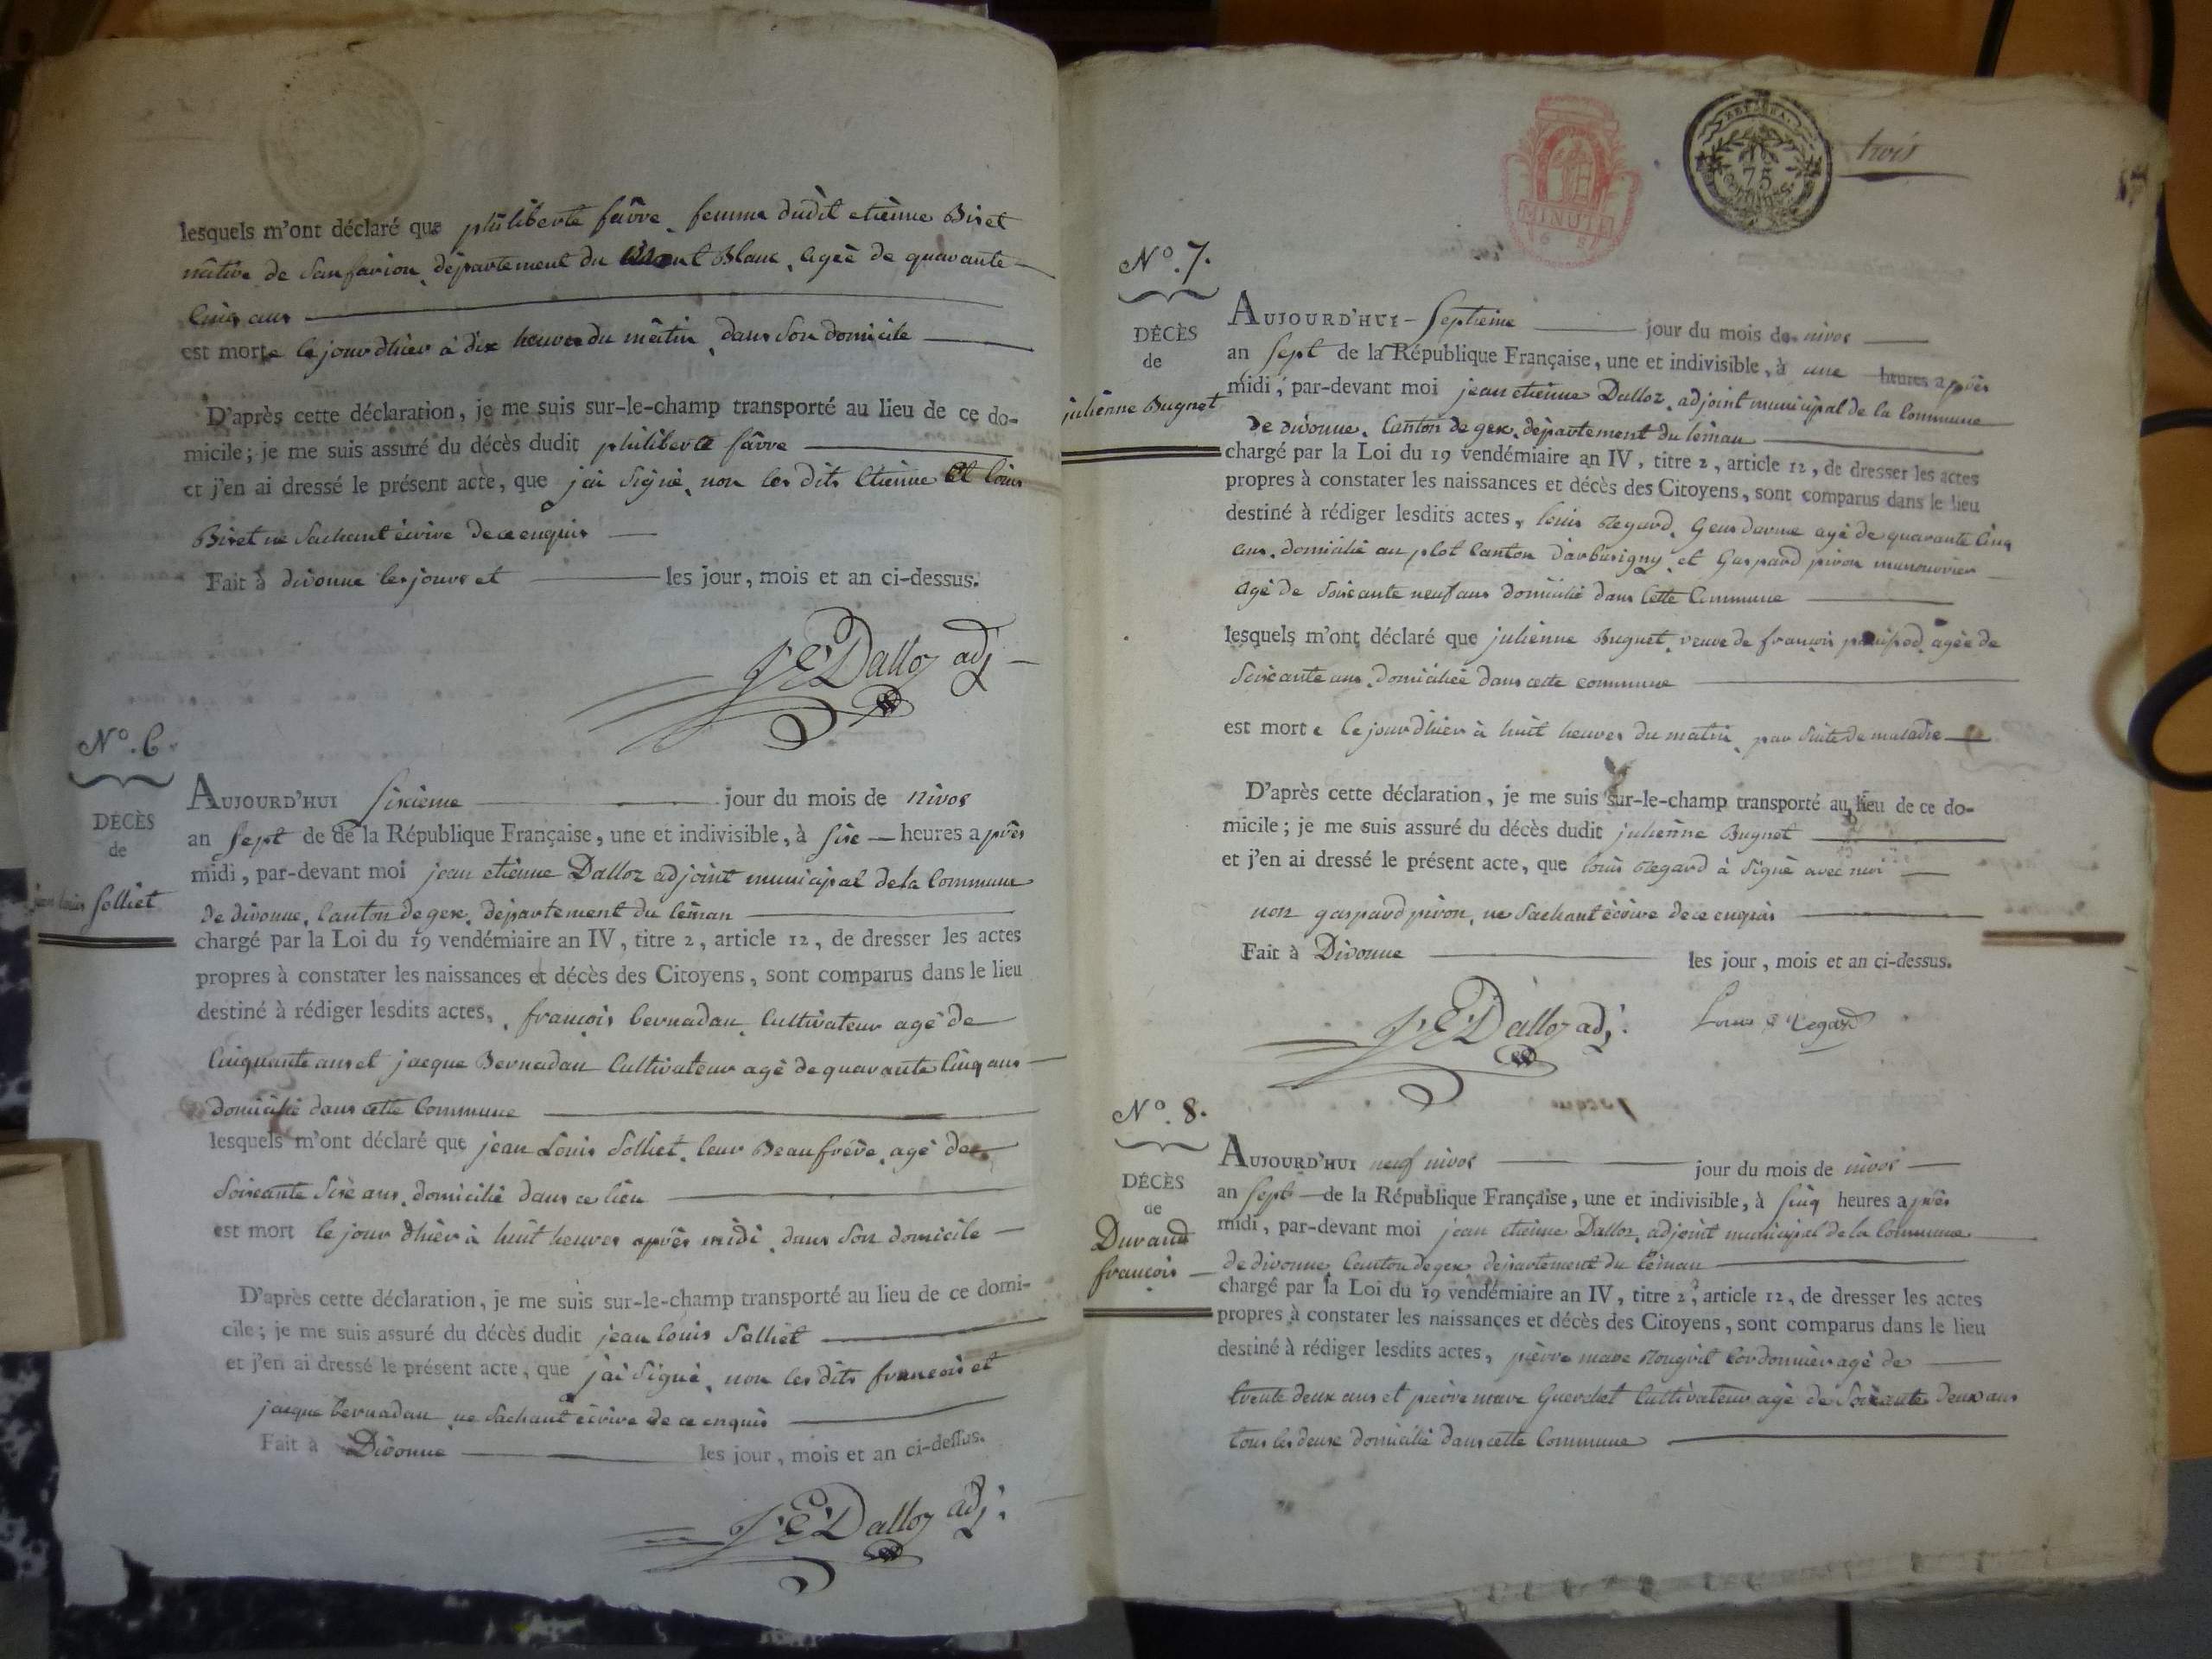 lesquels m'ont déclaré que philiberte favre, femme dudit etienne Biret
native de Sanfarion, département du mont Blanc, agée de quarante
Cinq ans
est morte le jour dhier à dix heures du matin, dans Son domicile
D'après cette déclaration, je me suis sur-le-champ transporté au lieu de ce do-
micile; je me suis assuré du décès dudit philiberte favre
et j'en ai dressé le présent acte, que jai Signé, non les dits Etienne et louis
Biret ne Sachant écrire de ce enquis
Fait à divonne les jours et les jour, mois et an ci-dessus.
J E Dalloz adj
N°. 6.
DÉCÈS
de
jean louis Solliet
AUJOURD'HUI Sixieme jour du mois de nivos
an Sept de de la République Française, une et indivisible, à Sixe heures après
midi, par-devant moi jean etienne Dalloz adjoint municipal de la Commune
de divonne, Canton de gex, département du léman
chargé par la Loi du 19 vendémiaire an IV, titre 2, article 12, de dresser les actes
propres à constater les naissances et décès des Citoyens, sont comparus dans le lieu
destiné à rédiger lesdits actes, françois bernadan, Cultivateur agé de
Cinquante ans et jacque Bernadan Cultivateur agé de quarante Cinq ans
domicilié dans cette Commune
lesquels m'ont déclaré que jean Louis Solliet, leur Beaufrère, agé de
Soixante Sixe ans, domicilié dans ce lieu
est mort le jour dhier à huit heures après midi, dans Son domicile
D'après cette déclaration, je me suis sur-le-champ transporté au lieu de ce domi-
cile; je me suis assuré du décès dudit jean louis Solliet
et j'en ai dressé le présent acte, que j'ai Signé, non les dits françois et
jacque bernadan ne Sachant écrire de ce enquis
Fait à Divonne les jour, mois et an ci-dessus.
J E Dalloz adj.
trois
MINUTE
75
N°. 7.
DÉCÈS
de
julienne Bugnet
AUJOURD'HUI Septieme jour du mois de nivos
an Sept de la République Française, une et indivisible, à une heures après
midi, par-devant moi jean etienne Dalloz, adjoint municipal de la Commune
de divonne, Canton de gex, département du léman
chargé par la Loi du 19 vendémiaire an IV, titre 2, article 12, de dresser les actes
propres à constater les naissances et décès des Citoyens, sont comparus dans le lieu
destiné à rédiger lesdits actes, louis Regard, Gensdarme agé de quarante Cinq
ans, domicilié au plot Canton d'arbusigny, et Gaspard piron manouvrier
agé de Soixante neuf ans domicilié dans Cette Commune
lesquels m'ont déclaré que julienne Bugnet, veuve de françois agée de
Soixante ans, domiciliée dans cette commune
est morte le jour dhier à huit heures du matin, par Suite de maladie
D'après cette déclaration, je me suis sur-le-champ transporté au lieu de ce do-
micile; je me suis assuré du décès dudit julienne Bugnet
et j'en ai dressé le présent acte, que louis Regard à Signé avec moi
non gaspard piron, ne Sachant écrire de ce enquis
Fait à Divonne les jour, mois et an ci-dessus.
J E Dalloz adj. Louis Regard
N°. 8.
DÉCÈS
de
Durand
françois
AUJOURD'HUI neuf nivos jour du mois de nivos
an Sept de la République Française, une et indivisible, à Sinq heures après
midi, par-devant moi jean etienne Dalloz, adjoint municipal de la Commune
de divonne, Canton de gex, département du léman
chargé par la Loi du 19 vendémiaire an IV, titre 2, article 12, de dresser les actes
propres à constater les naissances et décès des Citoyens, sont comparus dans le lieu
destiné à rédiger lesdits actes, pierre marc Rougvit Cordonnier agé de
trente deux ans et pierre marc Guerchet Cultivateur agé de Soixante deux ans
tous les deux domicilié dans cette Commune